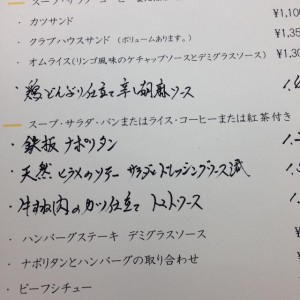 ・ カツサンド ¥1,100
・ クラブハウスサンド （ボリュームあります。） ¥1,35
・ オムライス（リンゴ風味のケチャップソースとデミグラスソース） ¥1,30
・ 鶏どんぶり仕立て 辛し胡麻ソース
スープ・サラダ・パンまたはライス・コーヒーまたは紅茶付き
・ 鉄板 ナポリタン
・ 天然 ヒラメのソテー ドレッシングソース
・ 牛すね肉のカツ仕立て トマトソース
・ ハンバーグステーキ デミグラスソース
・ ナポリタンとハンバーグの取り合わせ
・ ビーフシチュー